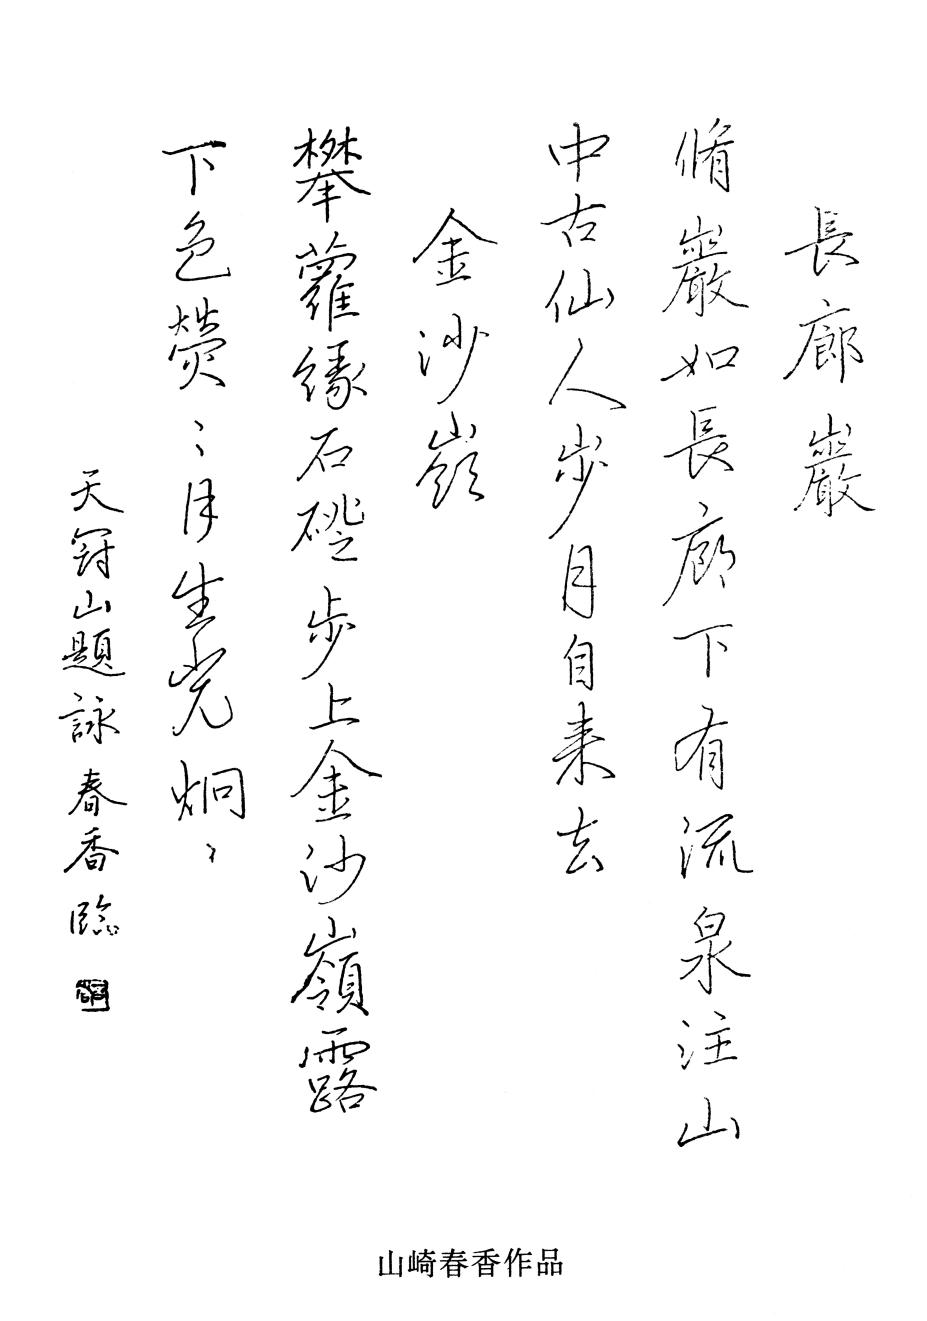 長廊巖
脩巖如長廊下有流泉注山
中古仙人步月自来去
金沙嶺
攀蘿緣石磴步上金沙嶺露
下色熒〻月生光炯〻
天冠山題詠 春香臨
山崎春香作品